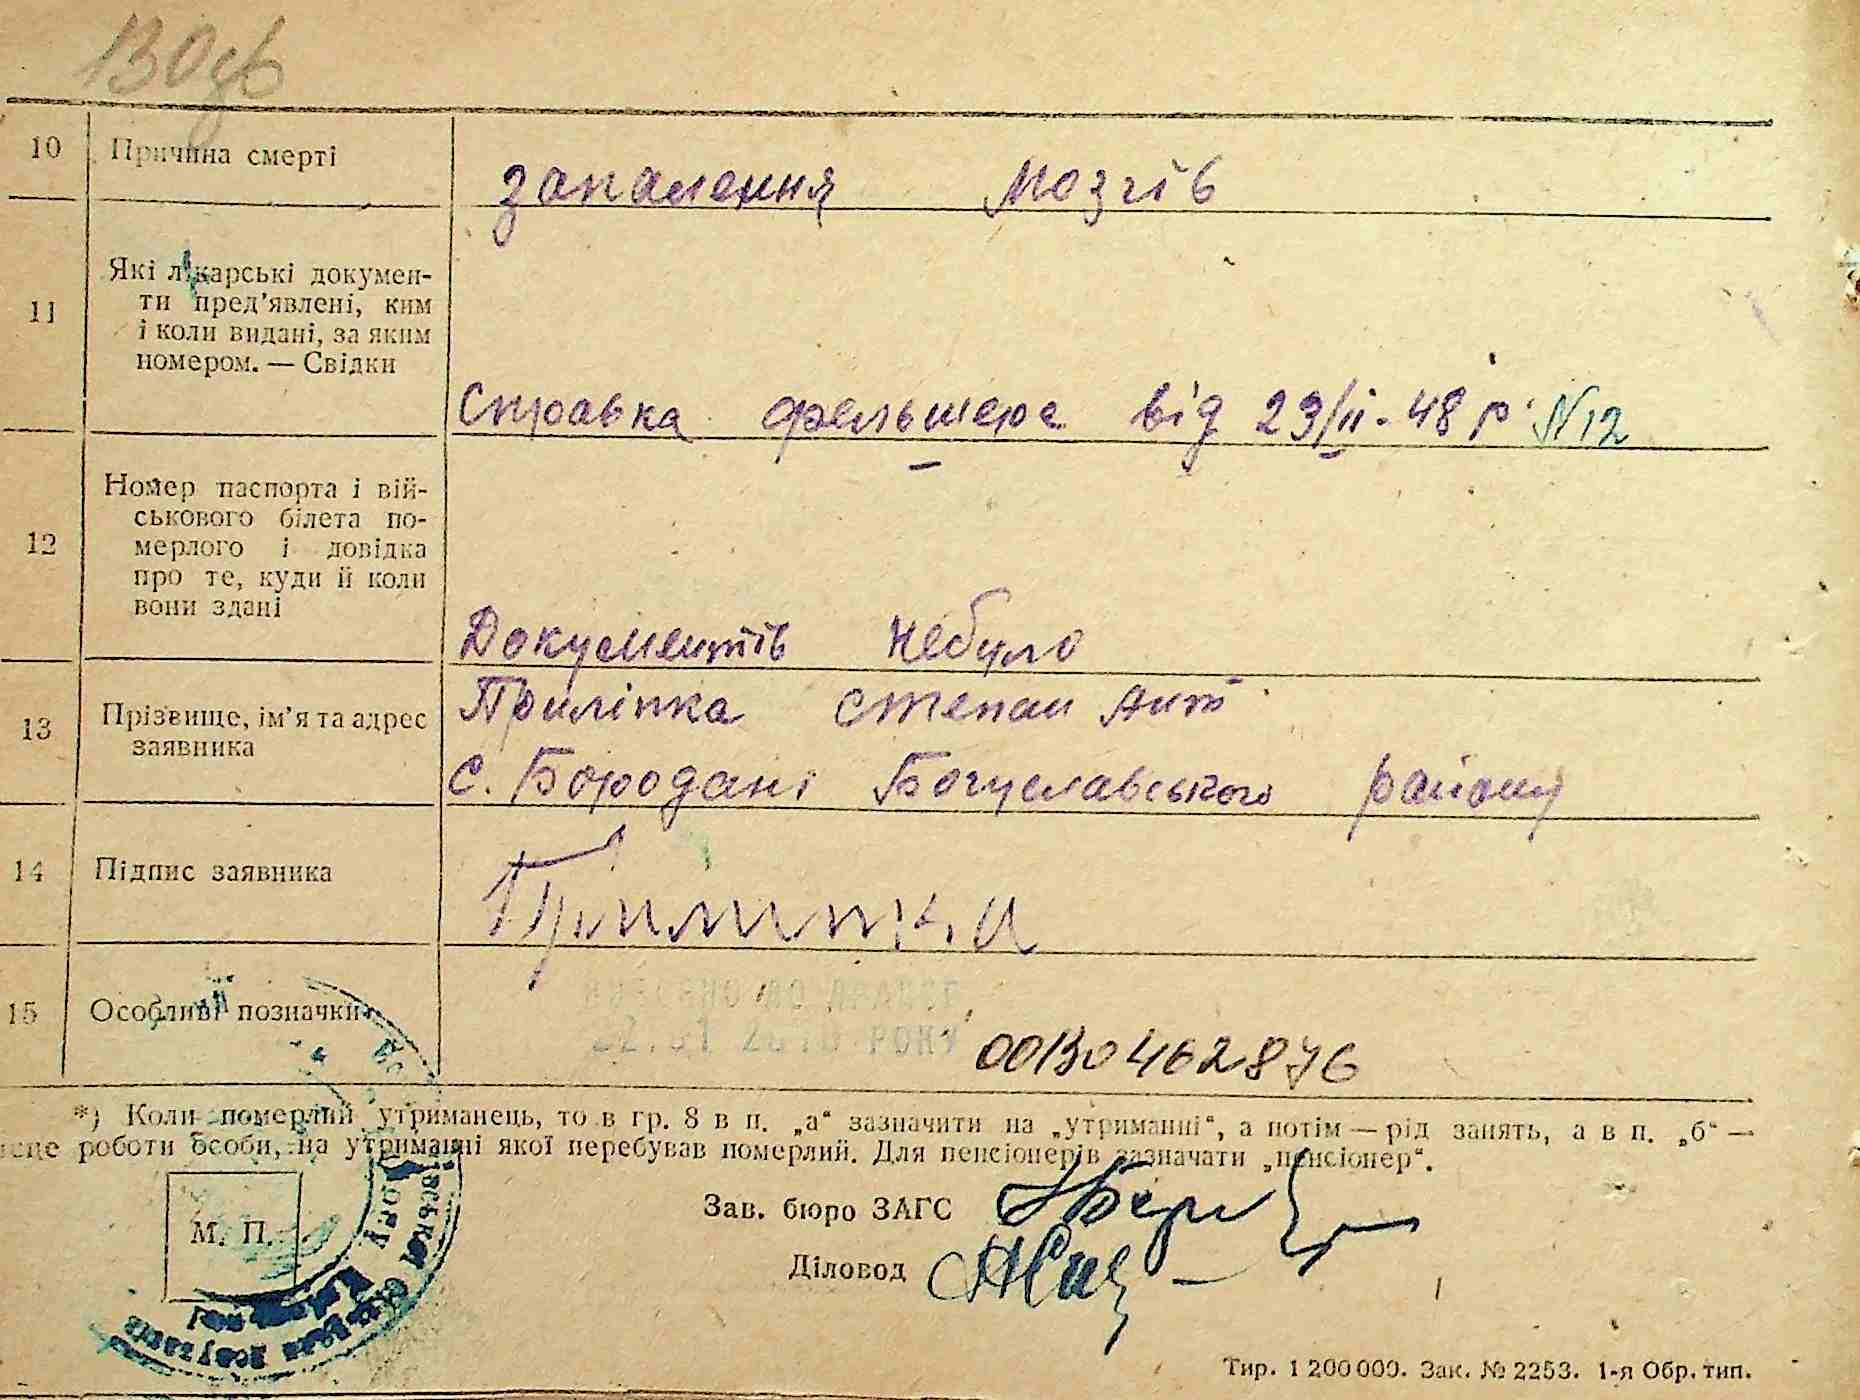 10 Причина смерті
запалення мозгів
11 Які лікарські докумен-
ти пред’явлені, ким
і коли видані, за яким
номером. — Свідки
Справка фельшера від 23/ІІ-48 р N12
12 Номер паспорта і вій-
ськового білета по-
мерлого і довідка
про те, куди й коли
вони здані
Документів небуло
13 Прізвище, ім’я та адрес
заявника
Приліпка Степан Ант
с. Бородані Богуславського району
14 Підпис заявника
Прилипка
15 Особливі позначки
РОКУ
00130462876
*) Коли померлий утриманець, то в гр. 8 в п. „а“ зазначити на „утриманні“, а потім — рід занять, а в п. „б“ —
роботи особи, на утриманні якої перебував померлий. Для пенсіонерів зазначати „пенсіонер“.
Зав. бюро ЗАГС
М. П.
Діловод
Тир. 1 200 000. Зак. № 2253. 1-я Обр. тип.